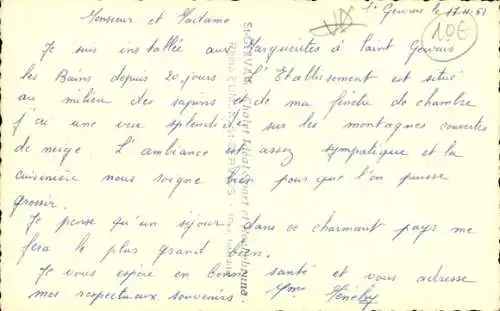 St Gervais le 17-11-61
10€
Monsieur et Madame
Je suis installée aux Marguerites à Saint Gervais
les Bains depuis 20 jours. L'Etablissement est situé
au milieu des sapins et de ma fenêtre de chambre
j'ai une vue splendide sur les montagnes couvertes
de neige. L'ambiance est assez sympatique et la
cuisinière nous soigne bien pour que l'on puisse
grossir.
Je pense qu'un séjour dans ce charmant pays me
fera le plus grand bien.
Je vous espère en bonne santé et vous adresse
mes respectueux souvenirs. Yme